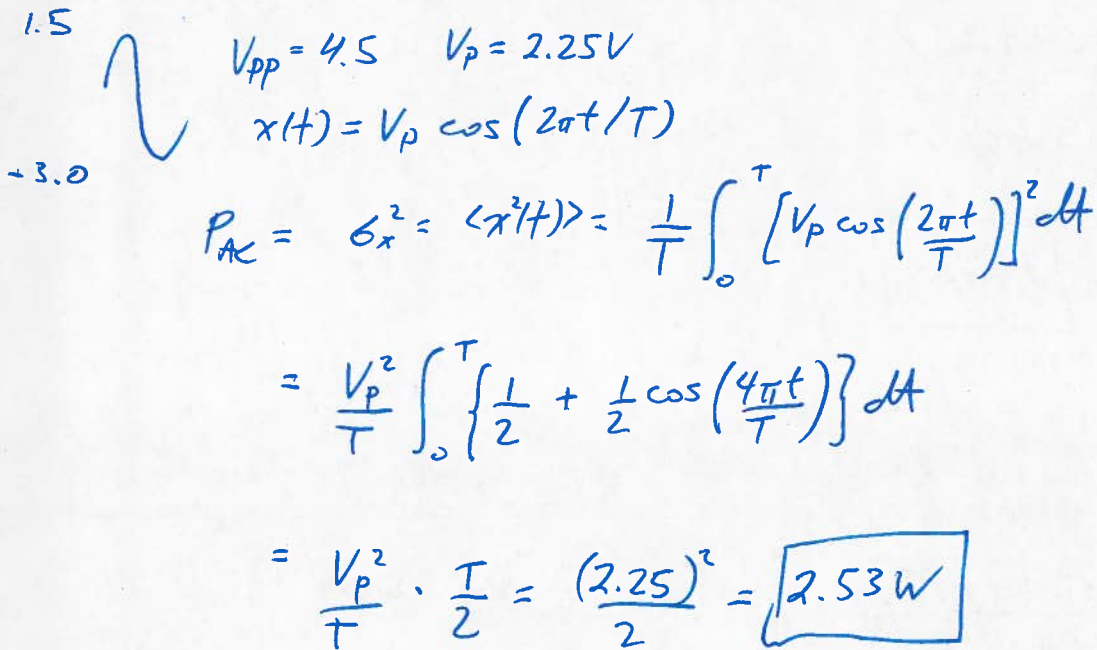 1.5
V_pp = 4.5 V_p = 2.25V
x(t) = V_p cos(2πt/T)
-3.0
P_AC = σ_x^2 = <x^2(t)> = 1/T ∫_0^T [V_p cos(2πt/T)]^2 dt
= V_p^2/T ∫_0^T {1/2 + 1/2 cos(4πt/T)} dt
= V_p^2/T · T/2 = (2.25)^2/2 = 2.53W